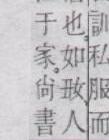 訓私服而
也如人
于家尙書